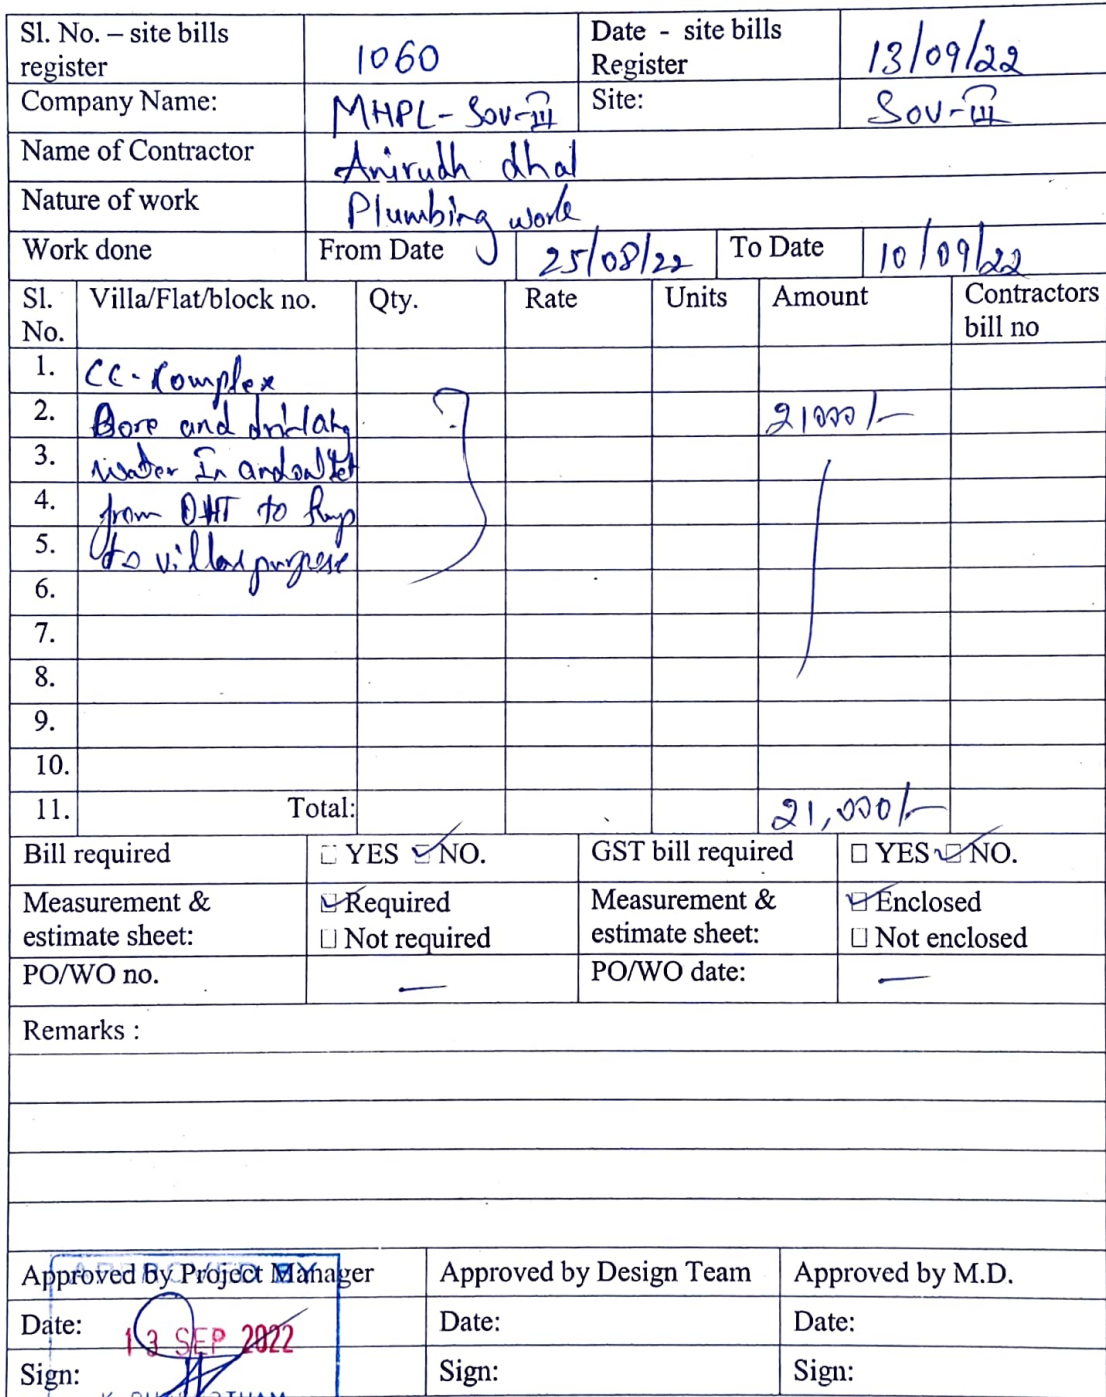 Sl. No. – site bills register 1060 Date - site bills Register 13/09/22
Company Name: MHPL-Sov-III Site: Sov-III
Name of Contractor Anirudh dhal
Nature of work Plumbing work
Work done From Date 25/08/22 To Date 10/09/22
Sl. No. Villa/Flat/block no. Qty. Rate Units Amount Contractors bill no
1. CC-Complex
2. Bore and 21000/-
3. water In and
4. from OHT to
5. to villas purpose
6.
7.
8.
9.
10.
11. Total: 21,000/-
Bill required YES NO. GST bill required YES NO.
Measurement & estimate sheet: Required Not required Measurement & estimate sheet: Enclosed Not enclosed
PO/WO no. — PO/WO date: —
Remarks :
Approved By Project Manager Approved by Design Team Approved by M.D.
APPROVED BY
Date: 13 SEP 2022 Date: Date:
Sign: Sign: Sign: